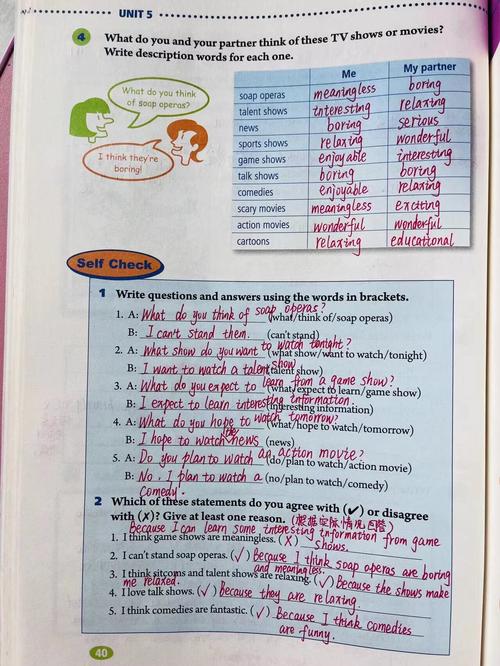 UNIT 5
4 What do you and your partner think of these TV shows or movies?
Write description words for each one.
What do you think
of soap operas?
I think they're
boring!
Me My partner
soap operas meaningless boring
talent shows interesting relaxing
news boring serious
sports shows relaxing wonderful
game shows enjoyable interesting
talk shows boring boring
comedies enjoyable relaxing
scary movies meaningless exciting
action movies wonderful wonderful
cartoons relaxing educational
Self Check
1 Write questions and answers using the words in brackets.
1. A: What do you think of soap operas? (what/think of/soap operas)
B: I can't stand them. (can't stand)
2. A: What show do you want to watch tonight? (what show/want to watch/tonight)
B: I want to watch a talent show (talent show)
3. A: What do you expect to learn from a game show? (what/expect to learn/game show)
B: I expect to learn interesting information. (interesting information)
4. A: What do you hope to watch tomorrow? (what/hope to watch/tomorrow)
B: I hope to watch the news (news)
5. A: Do you plan to watch an action movie? (do/plan to watch/action movie)
B: No. I plan to watch a (no/plan to watch/comedy)
comedy.
2 Which of these statements do you agree with (✓) or disagree
with (✗)? Give at least one reason. (根据实际情况回答)
Because I can learn some interesting information from game
1. I think game shows are meaningless. (X) shows.
2. I can't stand soap operas. (✓) Because I think soap operas are boring
and meaningless.
3. I think sitcoms and talent shows are relaxing. (✓) Because the shows make
me relaxed.
4. I love talk shows. (✓) Because they are relaxing.
5. I think comedies are fantastic. (✓) Because I think comedies
are funny.
40